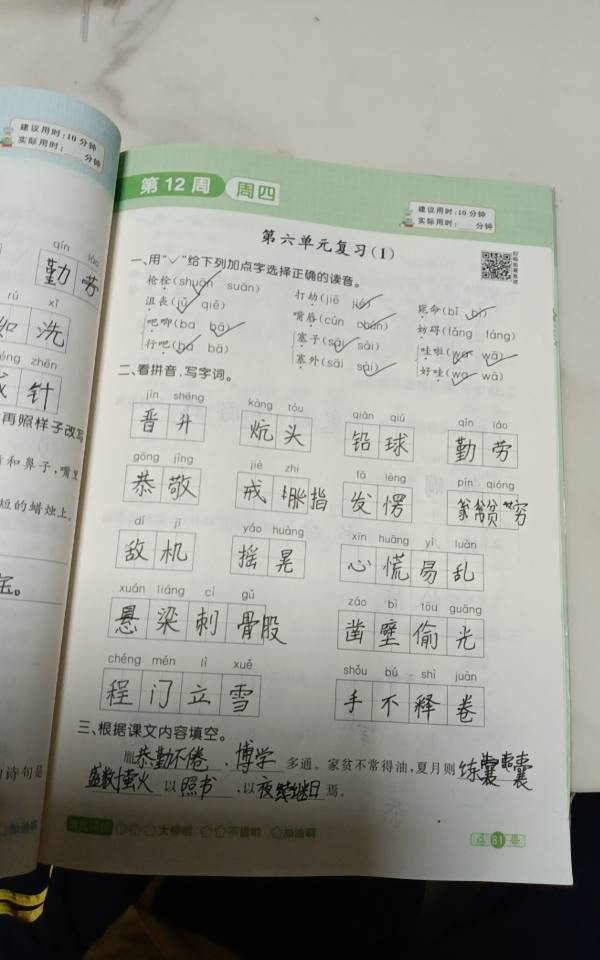 建议用时:10分钟
实际用时: 分钟
qín láo
勤劳
rú xǐ
如洗
zhēn
针
再照样子改写
和鼻子,嘴里
短的蜡烛上
诗句是
第12周 周四
建议用时:10分钟
实际用时: 分钟
第六单元复习(1)
一、用“✓”给下列加点字选择正确的读音。
枪栓(shuān suān) 打劫(jié jié) 毙命(bī bì)
沮丧(jǔ qiě) 嘴唇(cún chún) 妨碍(fǎng fáng)
吧唧(ba bā) 塞子(sāi sài) 哇啦(wa wā)
行吧(ba bā) 塞外(sāi sài) 好哇(wa wā)
二、看拼音,写字词。
jìn shēng kàng tóu qiān qiú qín láo
晋升 炕头 铅球 勤劳
gōng jìng jiè zhi fā lèng pín qióng
恭敬 戒指 发愣 贫穷
dí jī yáo huàng xīn huāng yì luàn
敌机 摇晃 心慌易乱
xuán liáng cì gǔ záo bì tōu guāng
悬梁刺股 凿壁偷光
chéng mén lì xuě shǒu bú shì juàn
程门立雪 手不释卷
三、根据课文内容填空。
胤恭勤不倦,博学多通。家贫不常得油,夏月则练囊
盛数萤火以照书,以夜继日焉。
大棒啦 不错哟 加油啊
61